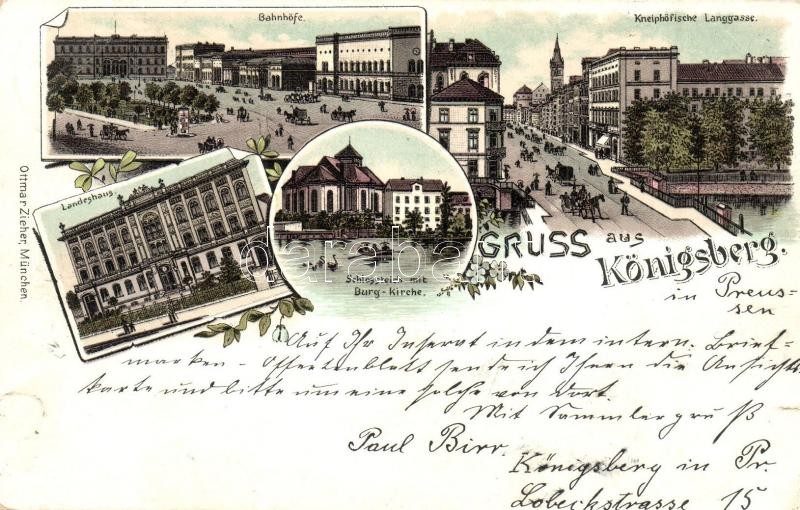 Bahnhöfe.
Kneiphöfische Langgasse.
Landeshaus.
Schlossteich mit
Burg-Kirche.
GRUSS aus
Königsberg.
in Preus-
sen
Ottmar Zieher, München.
darabanth
Auf Ihr Inserat in dem intern. Brief-
marken - Offertenblatt sende ich Ihnen die Ansichts
karte und bitte um eine solche von dort.
Mit Sammlergruß
Paul Birr.
Königsberg in Pr.
Lobeckstrasse 15